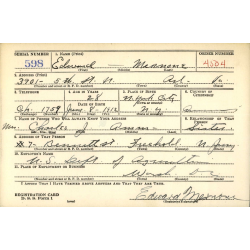 SERIAL NUMBER 1. NAME (Print) ORDER NUMBER
598 Edward Mennone 4504
2. ADDRESS (Print)
3701 - 5th St. N. Arl. Va
3. TELEPHONE 4. AGE IN YEARS 5. PLACE OF BIRTH 6. COUNTRY OF CITIZENSHIP
28 New York City
Ch. 1759 June 8, 1912 N.Y.
7. NAME OF PERSON WHO WILL ALWAYS KNOW YOUR ADDRESS 8. RELATIONSHIP OF THAT PERSON
Mrs. Charles Sister
9. ADDRESS OF THAT PERSON
#7- Bennett St Freehold N. Jersey
10. EMPLOYER'S NAME
U.S. Dept of Agriculture
11. PLACE OF EMPLOYMENT OR BUSINESS
Wash D.C.
I AFFIRM THAT I HAVE VERIFIED ABOVE ANSWERS AND THAT THEY ARE TRUE.
REGISTRATION CARD
D. S. S. FORM 1
Edward Mennone